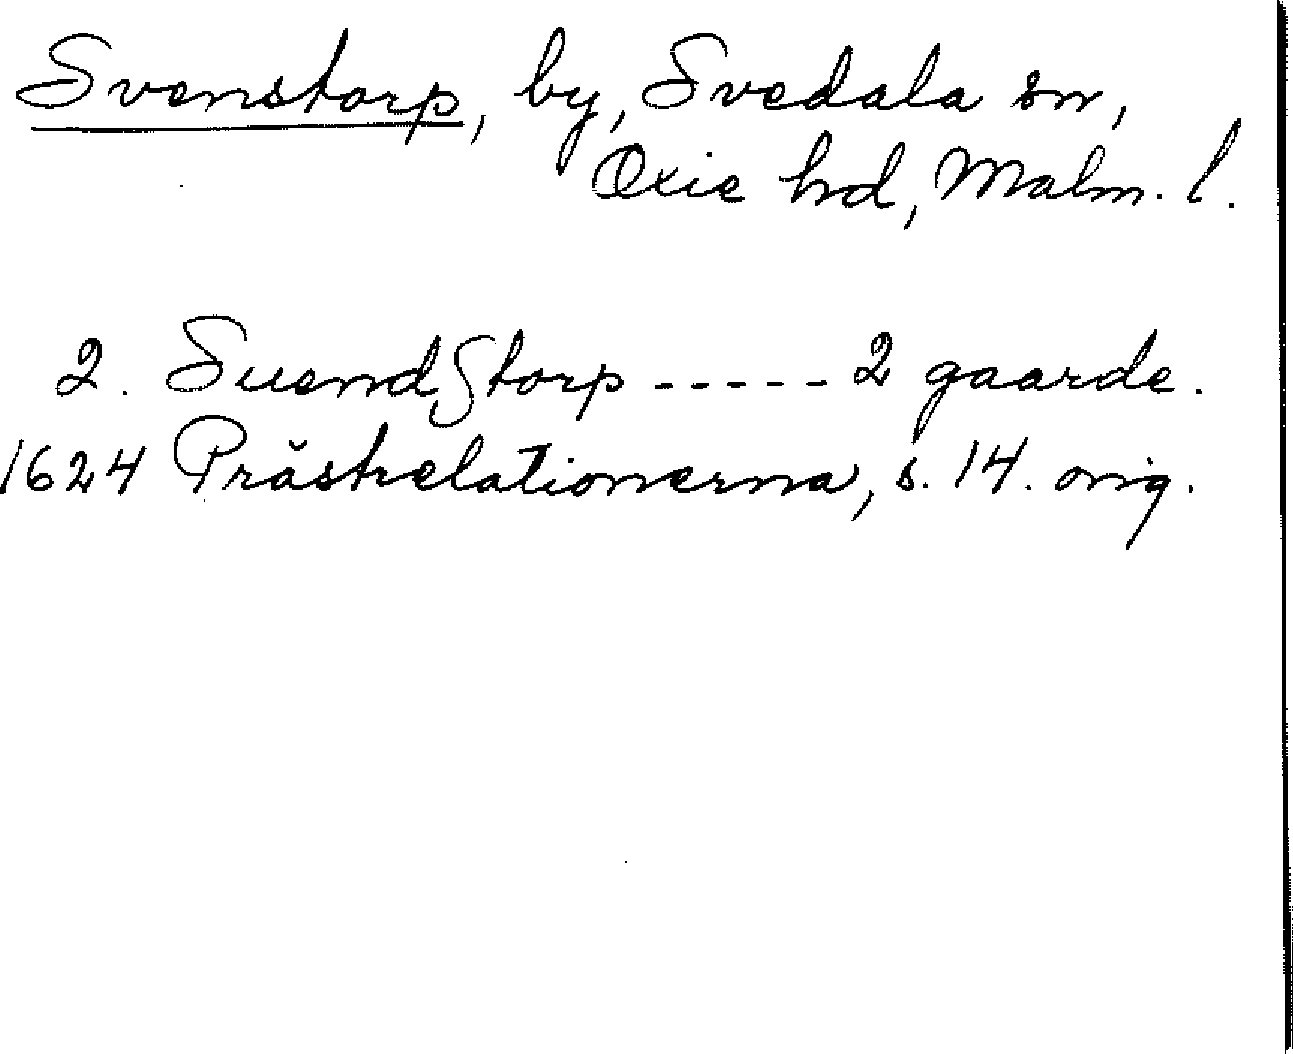 Svenstorp, by, Svedala sn,
Oxie hd, Malm. l.
2. Suendſtorp ----- 2 gaarde.
1624 Prästrelationerna, s. 14. orig.